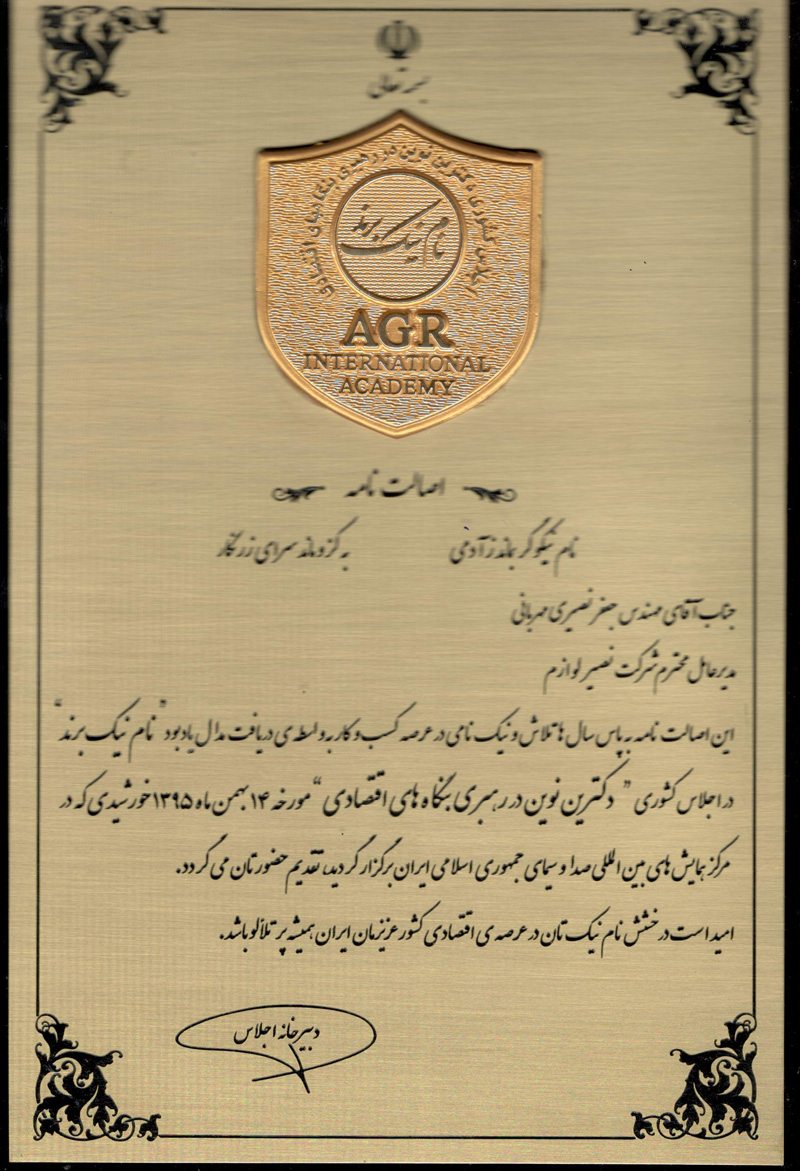 بسمه تعالی
اجلاس کشوری دکترین نوین در رهبری بنگاه های اقتصادی
نام نیک برند
AGR
INTERNATIONAL
ACADEMY
اصالت نامه
نام نیکو گر بماند ز آدمی به کزو ماند سرای زرنگار
جناب آقای مهندس جعفر نصیری مهربانی
مدیرعامل محترم شرکت نصیر لوازم
این اصالت نامه به پاس سال ها تلاش و نیک نامی در عرصه کسب و کار به واسطه ی دریافت مدال یادبود "نام نیک برند"
در اجلاس کشوری " دکترین نوین در رهبری بنگاه های اقتصادی " مورخه ۱۴ بهمن ماه ۱۳۹۵ خورشیدی که در
مرکز همایش های بین المللی صدا و سیمای جمهوری اسلامی ایران برگزار گردید، تقدیم حضورتان می گردد.
امید است درخشش نام نیک تان در عرصه ی اقتصادی کشور عزیزمان ایران همیشه پر تلألو باشد.
دبیرخانه اجلاس